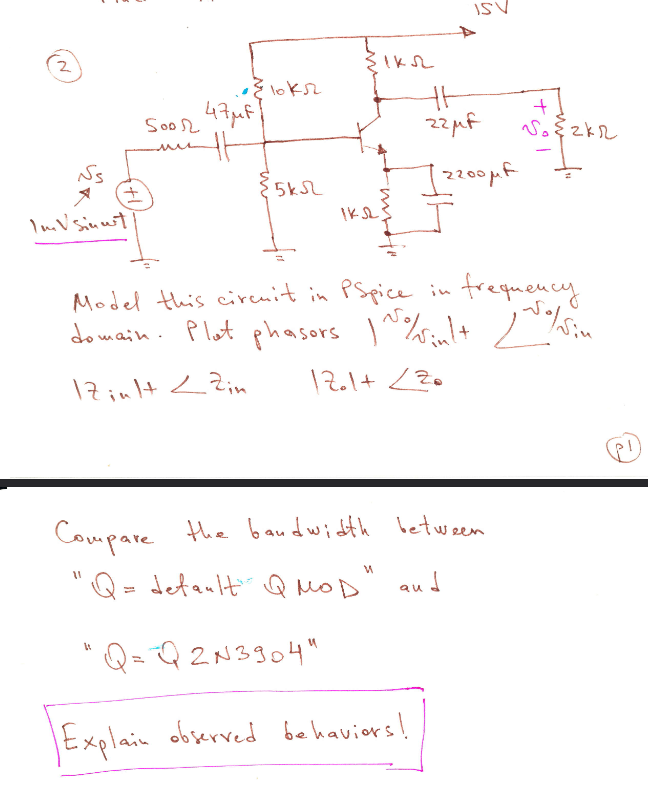 15V
2
1KΩ
10KΩ
47μF
500Ω
22μF
+
Vo
-
2KΩ
Vs
±
5KΩ
2200μF
1KΩ
1mV sinωt
Model this circuit in PSpice in frequency
domain. Plot phasors |Vo/Vin| + ∠Vo/Vin
|Zin| + ∠Zin |Zo| + ∠Zo
p1
Compare the bandwidth between
"Q = default QMOD" and
"Q = Q2N3904"
Explain observed behaviors!